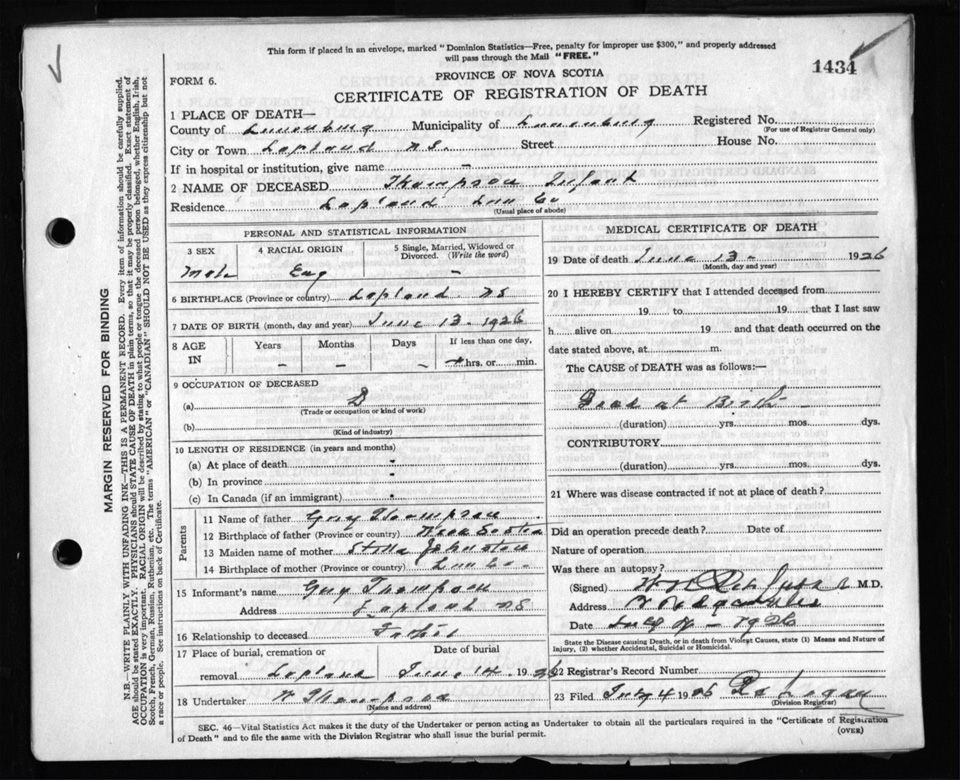 This form if placed in an envelope, marked "Dominion Statistics—Free, penalty for improper use $300," and properly addressed
will pass through the Mail "FREE."
1434
FORM 6.
PROVINCE OF NOVA SCOTIA
CERTIFICATE OF REGISTRATION OF DEATH
1 PLACE OF DEATH—
County of Lunenburg Municipality of Lunenburg Registered No.
(For use of Registrar General only)
City or Town Lapland N.S. Street House No.
If in hospital or institution, give name –
2 NAME OF DECEASED Thompson Infant
Residence Lapland Lun Co
(Usual place of abode)
PERSONAL AND STATISTICAL INFORMATION
3 SEX 4 RACIAL ORIGIN 5 Single, Married, Widowed or
Divorced. (Write the word)
Male Eng –
6 BIRTHPLACE (Province or country) Lapland. N S
7 DATE OF BIRTH (month, day and year) June 13. 1926
8 AGE IN Years Months Days If less than one day,
– – – hrs. or min.
9 OCCUPATION OF DECEASED
(a)
(Trade or occupation or kind of work)
(b)
(Kind of industry)
10 LENGTH OF RESIDENCE (in years and months)
(a) At place of death
(b) In province
(c) In Canada (if an immigrant)
Parents
11 Name of father Guy Thompson
12 Birthplace of father (Province or country) Nova Scotia
13 Maiden name of mother Stella Johnston
14 Birthplace of mother (Province or country) Lun Co.
15 Informant's name Guy Thompson
Address Lapland N S
16 Relationship to deceased Father
17 Place of burial, cremation or Date of burial
removal Lapland June 14. 1926
18 Undertaker Thompson
(Name and address)
MEDICAL CERTIFICATE OF DEATH
19 Date of death June 13 – 1926
(Month, day and year)
20 I HEREBY CERTIFY that I attended deceased from
19 to 19 that I last saw
h alive on 19 and that death occurred on the
date stated above, at m.
The CAUSE of DEATH was as follows:—
Dead at Birth
(duration) yrs. mos. dys.
CONTRIBUTORY
(duration) yrs. mos. dys.
21 Where was disease contracted if not at place of death?
Did an operation precede death? Date of
Nature of operation
Was there an autopsy?
(Signed) M.D.
Address
Date 1926
State the Disease causing Death, or in death from Violent Causes, state (1) Means and Nature of
Injury, (2) whether Accidental, Suicidal or Homicidal.
22 Registrar's Record Number
23 Filed July 4 1926
(Division Registrar)
SEC. 46—Vital Statistics Act makes it the duty of the Undertaker or person acting as Undertaker to obtain all the particulars required in the "Certificate of Registration
of Death" and to file the same with the Division Registrar who shall issue the burial permit.
(OVER)
MARGIN RESERVED FOR BINDING
N.B.—WRITE PLAINLY WITH UNFADING INK—THIS IS A PERMANENT RECORD. Every item of information should be carefully supplied.
AGE should be stated EXACTLY. PHYSICIANS should STATE CAUSE OF DEATH in plain terms, so that it may be properly classified. Exact statement of
OCCUPATION is very important. RACIAL ORIGIN will be described by stating to what people or tongue the deceased person belonged, whether English, Irish,
Scotch, French, German, Russian, Ruthenian, etc. The terms "AMERICAN" or "CANADIAN" SHOULD NOT BE USED as they express citizenship but not
a race or people. See instructions on back of Certificate.